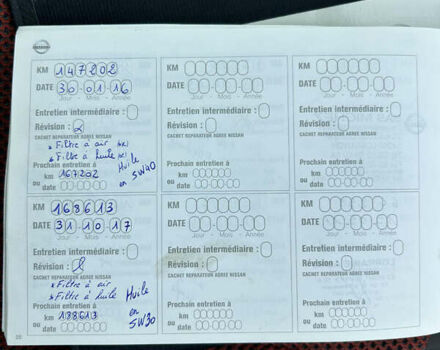 NISSAN
KM 147202
DATE 30-01-16
Jour - Mois - Année
Entretien intermédiaire :
Révision :
CACHET REPARATEUR AGREE NISSAN
* Filtre à air
* Filtre à huile
Prochain entretien à
km 167202
ou date
Huile en 5W40
KM
DATE
Jour - Mois - Année
Entretien intermédiaire :
Révision :
CACHET REPARATEUR AGREE NISSAN
Prochain entretien à
km
ou date
KM
DATE
Jour - Mois - Année
Entretien intermédiaire :
Révision :
CACHET REPARATEUR AGREE NISSAN
Prochain entretien à
km
ou date
KM 168613
DATE 31-10-17
Jour - Mois - Année
Entretien intermédiaire :
Révision :
CACHET REPARATEUR AGREE NISSAN
* Filtre à air
* Filtre à huile
Prochain entretien à
km 188613
ou date
Huile en 5W30
KM
DATE
Jour - Mois - Année
Entretien intermédiaire :
Révision :
CACHET REPARATEUR AGREE NISSAN
Prochain entretien à
km
ou date
KM
DATE
Jour - Mois - Année
Entretien intermédiaire :
Révision :
CACHET REPARATEUR AGREE NISSAN
Prochain entretien à
km
ou date